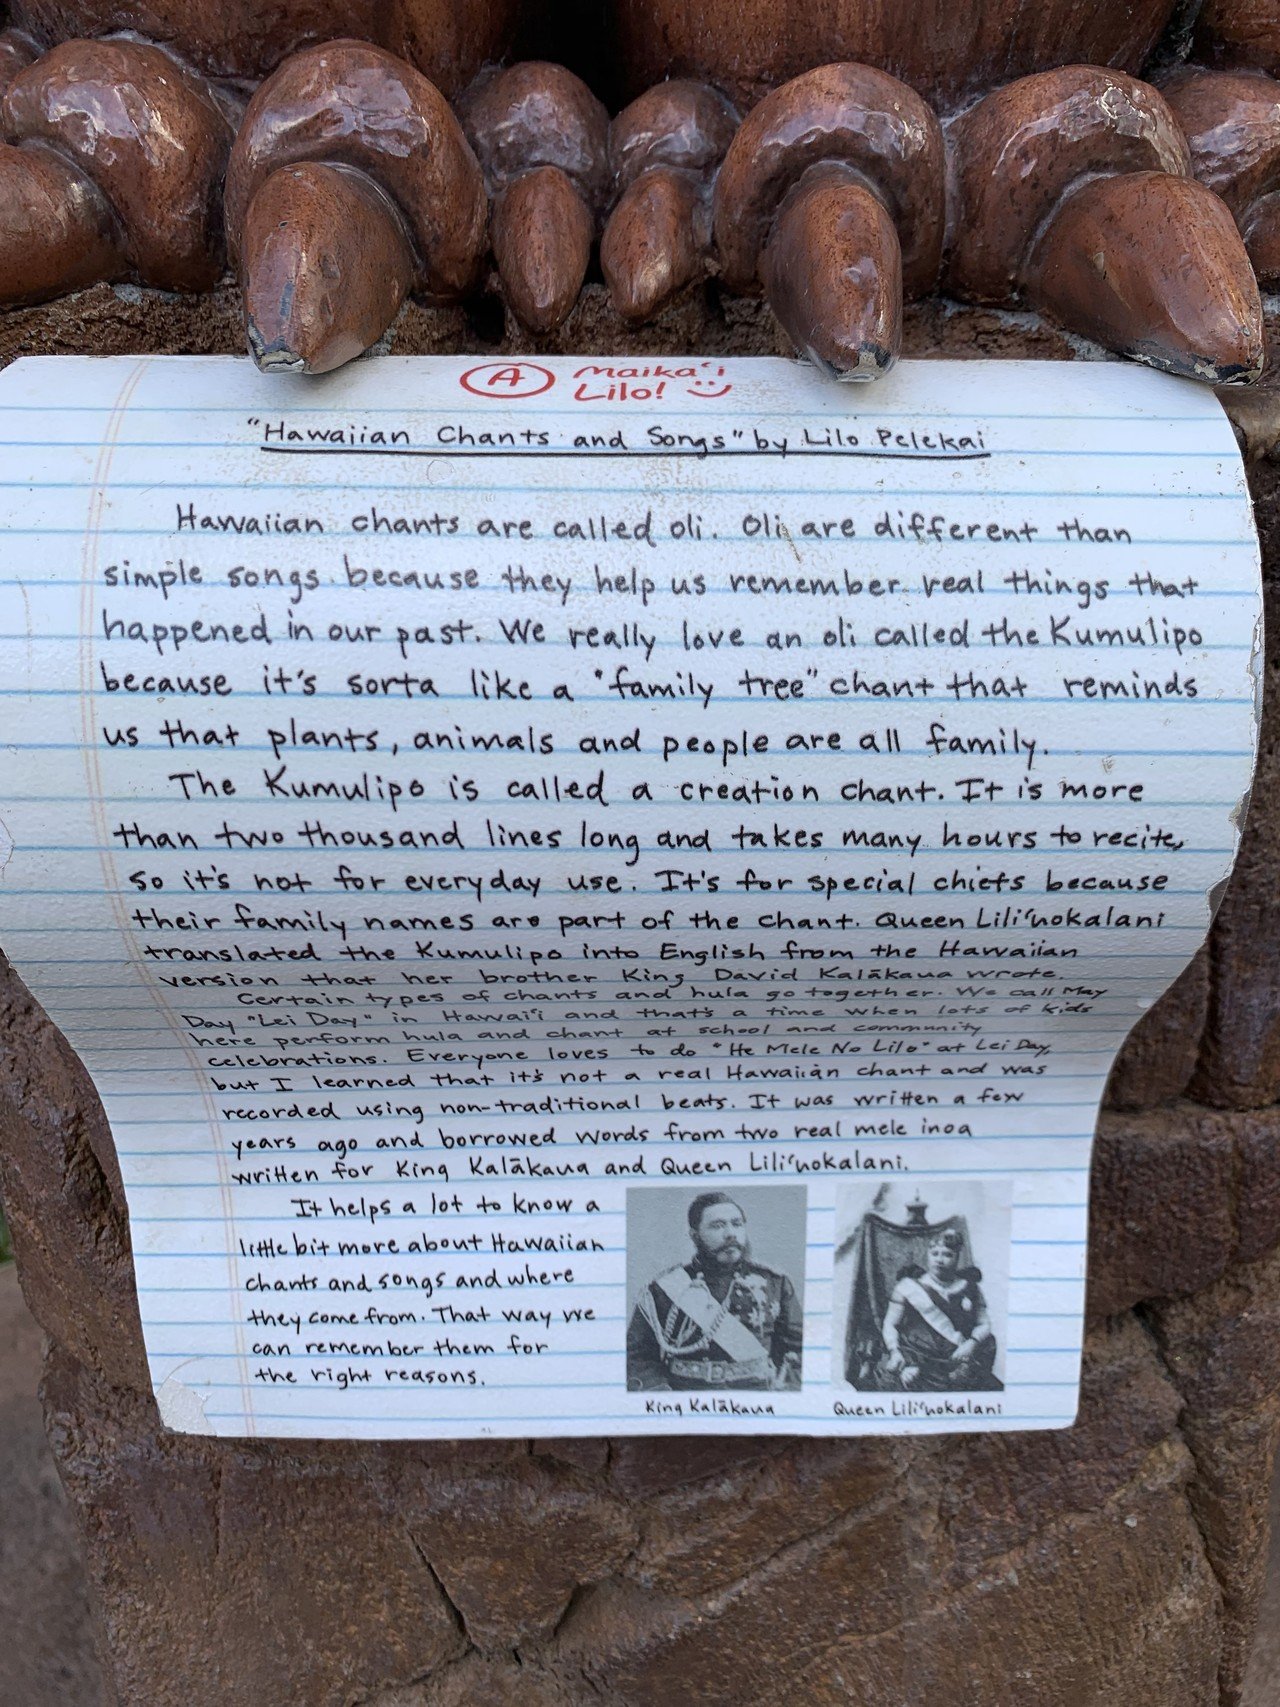 A Maika'i
Lilo!
"Hawaiian Chants and Songs" by Lilo Pelekai
Hawaiian chants are called oli. Oli are different than
simple songs because they help us remember real things that
happened in our past. We really love an oli called the Kumulipo
because it's sorta like a "family tree" chant that reminds
us that plants, animals and people are all family.
The Kumulipo is called a creation chant. It is more
than two thousand lines long and takes many hours to recite,
so it's not for everyday use. It's for special chiefs because
their family names are part of the chant. Queen Lili‘uokalani
translated the Kumulipo into English from the Hawaiian
version that her brother King David Kalākaua wrote.
Certain types of chants and hula go together. We call May
Day "Lei Day" in Hawai'i and that's a time when lots of kids
here perform hula and chant at school and community
celebrations. Everyone loves to do "He Mele No Lilo" at Lei Day,
but I learned that it's not a real Hawaiian chant and was
recorded using non-traditional beats. It was written a few
years ago and borrowed words from two real mele inoa
written for King Kalākaua and Queen Lili‘uokalani.
It helps a lot to know a
little bit more about Hawaiian
chants and songs and where
they come from. That way we
can remember them for
the right reasons.
King Kalākaua
Queen Lili‘uokalani